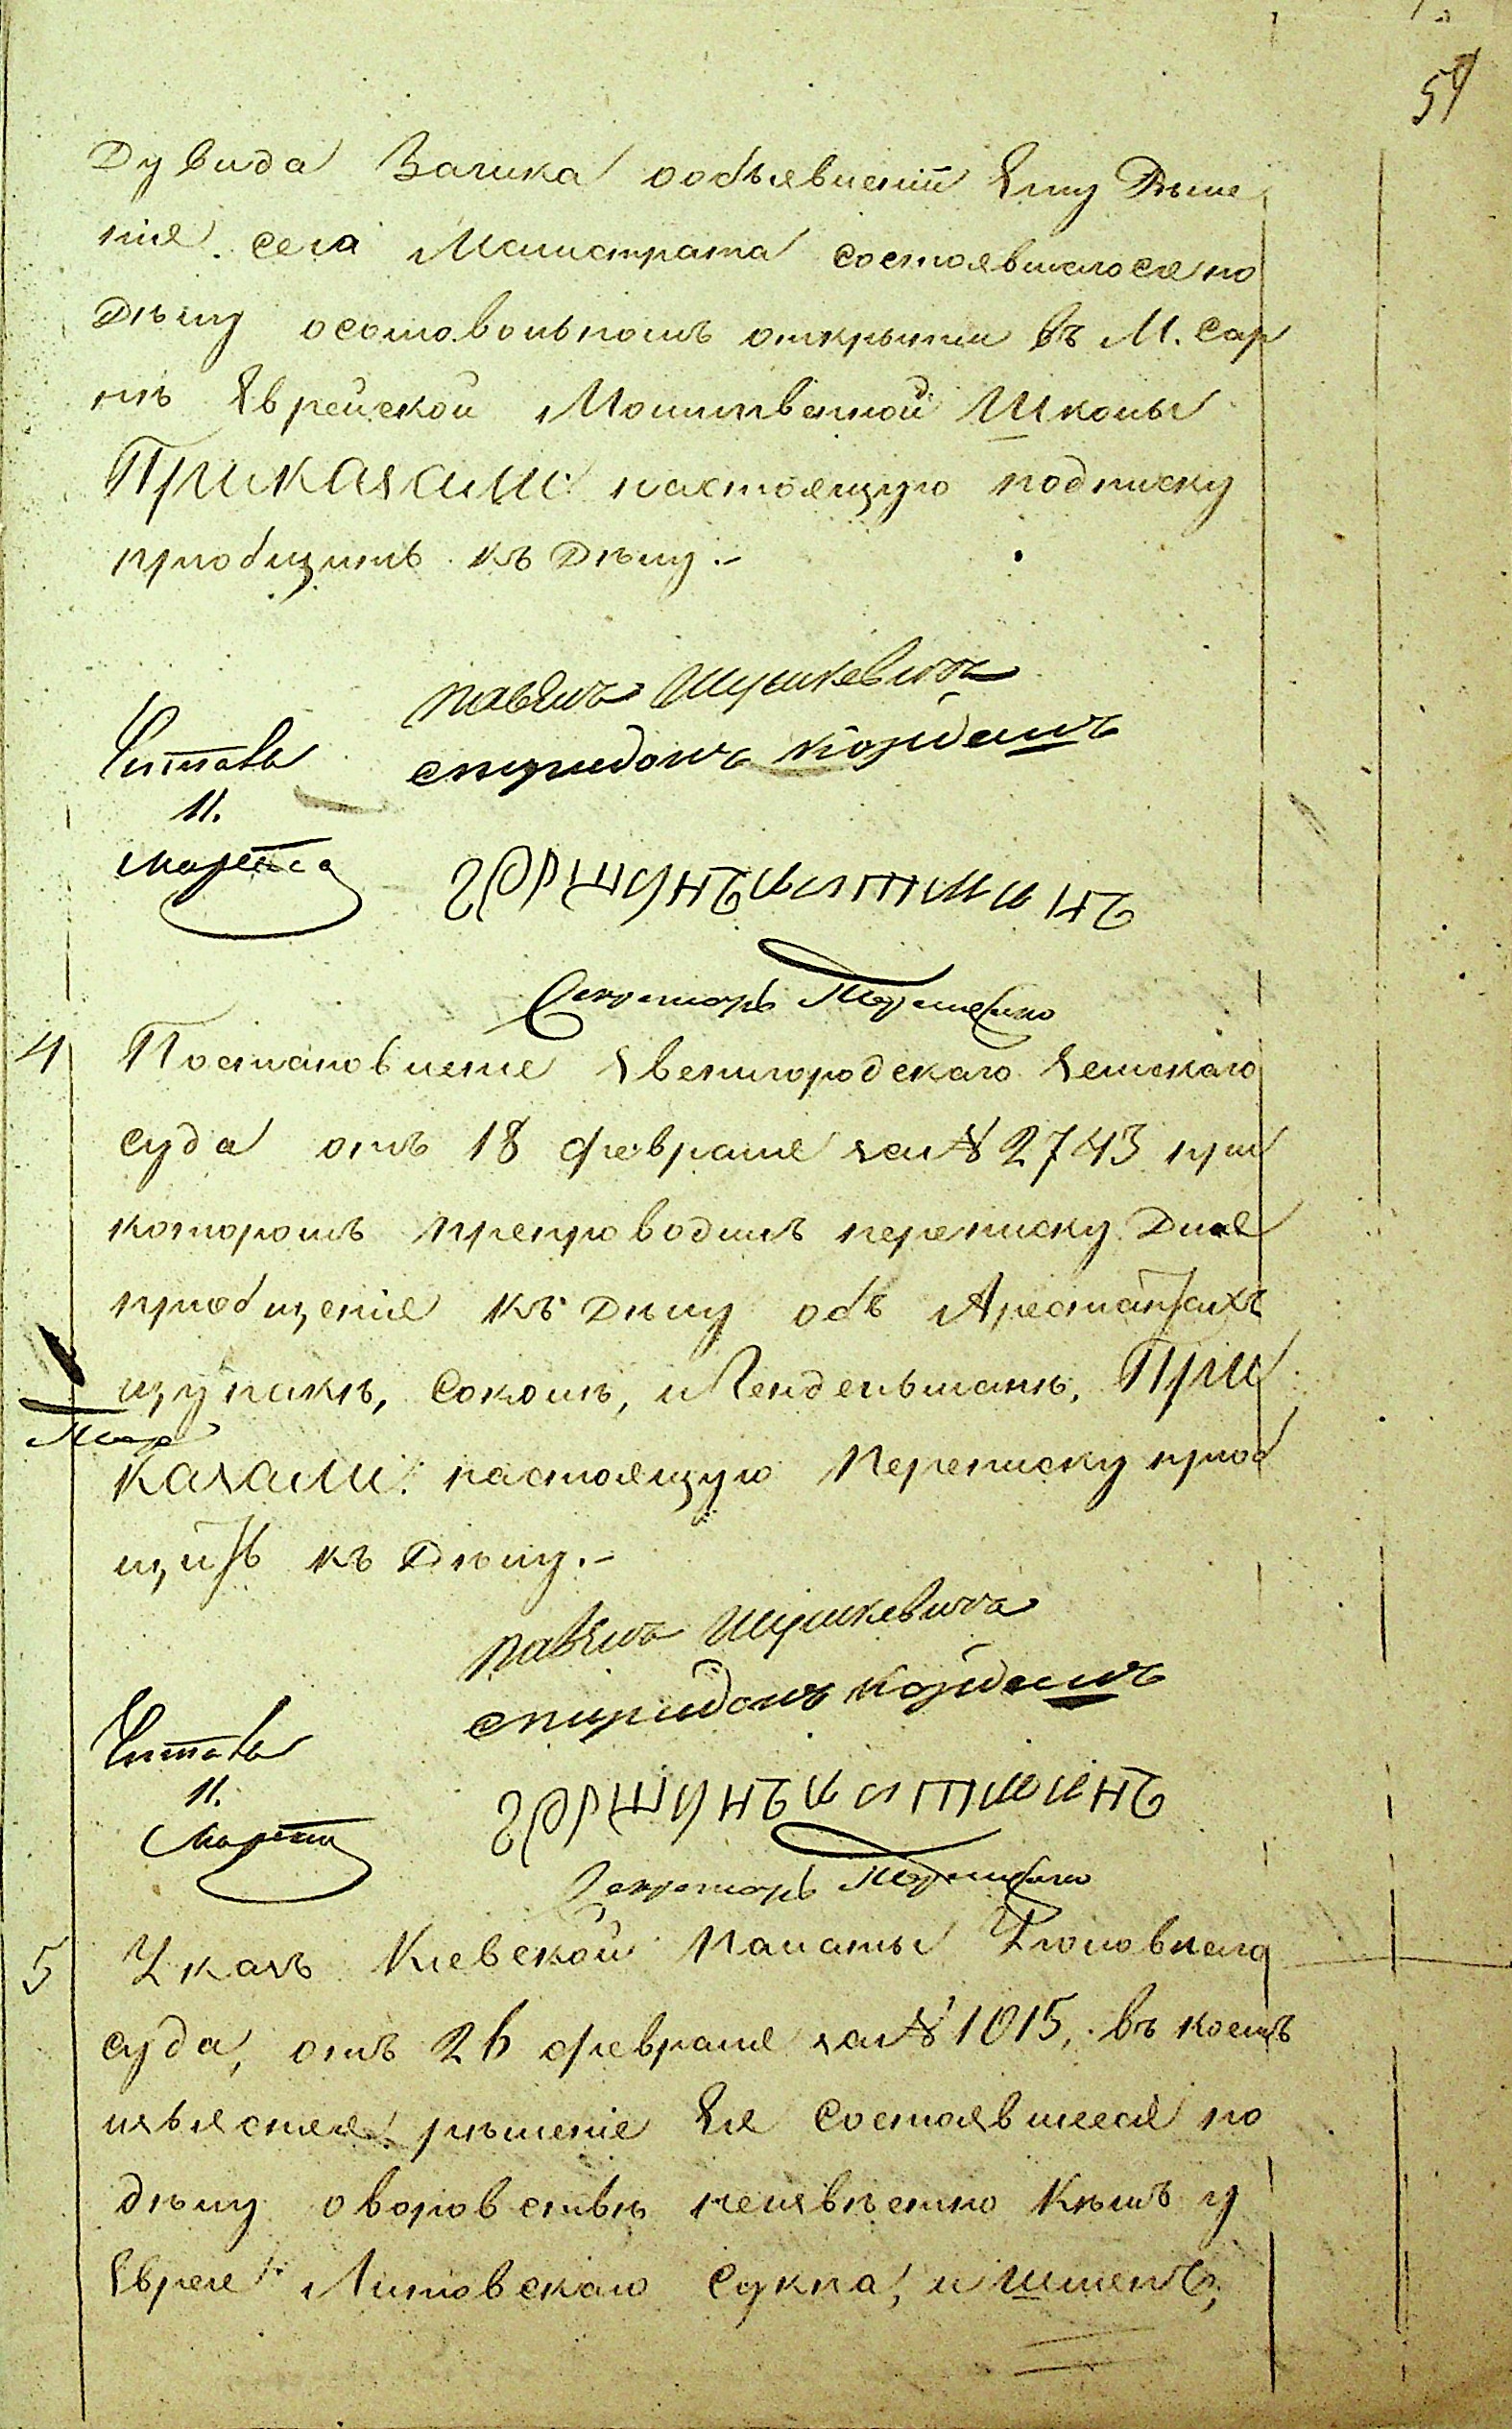 Дувида Зашка объявленіи Ему Рѣше
ніе сего Магистрата состоявшагося по
Дѣлу о самовольномъ открытіи въ М. Сар
нѣ Еврейской Молитвенной Школы
Приказали: настоящую подписку
пріобщить къ Дѣлу.-
Павелъ Шушкевичъ
Спиридонъ
Читалъ
11.
Марта
Секретарь
4
Постановленіе Звенигородскаго Земскаго
суда отъ 18 февраля за № 2743 при
которомъ препроводилъ переписку Для
пріобщенія къ Дѣлу объ Арестантахъ
щупакѣ, Соколѣ, и Гендельманѣ, При
казали: настоящую Переписку пріоб
щить къ Дѣлу.-
Павелъ Шушкевичъ
Спиридонъ
Читалъ
11.
Марта
Секретарь
5
Указъ Кіевской Палаты Уголовнаго
суда, отъ 26 февраля за № 1015, въ коемъ
изъясняя рѣшеніе Ея Состоявшееся по
дѣлу о воровствѣ неизвѣстно Кѣмъ у
Еврея Литовскаго Сукна, и